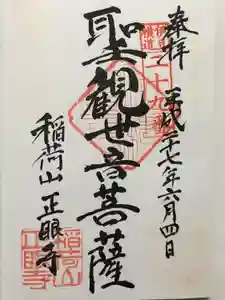 奉拝
平成二十七年六月四日
聖観世音菩薩
稲荷山 正眼寺
二十九番
稲荷山
正眼寺